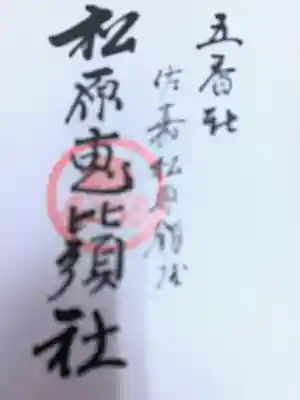 五番社
佐嘉松原鎮座
松原恵比須社